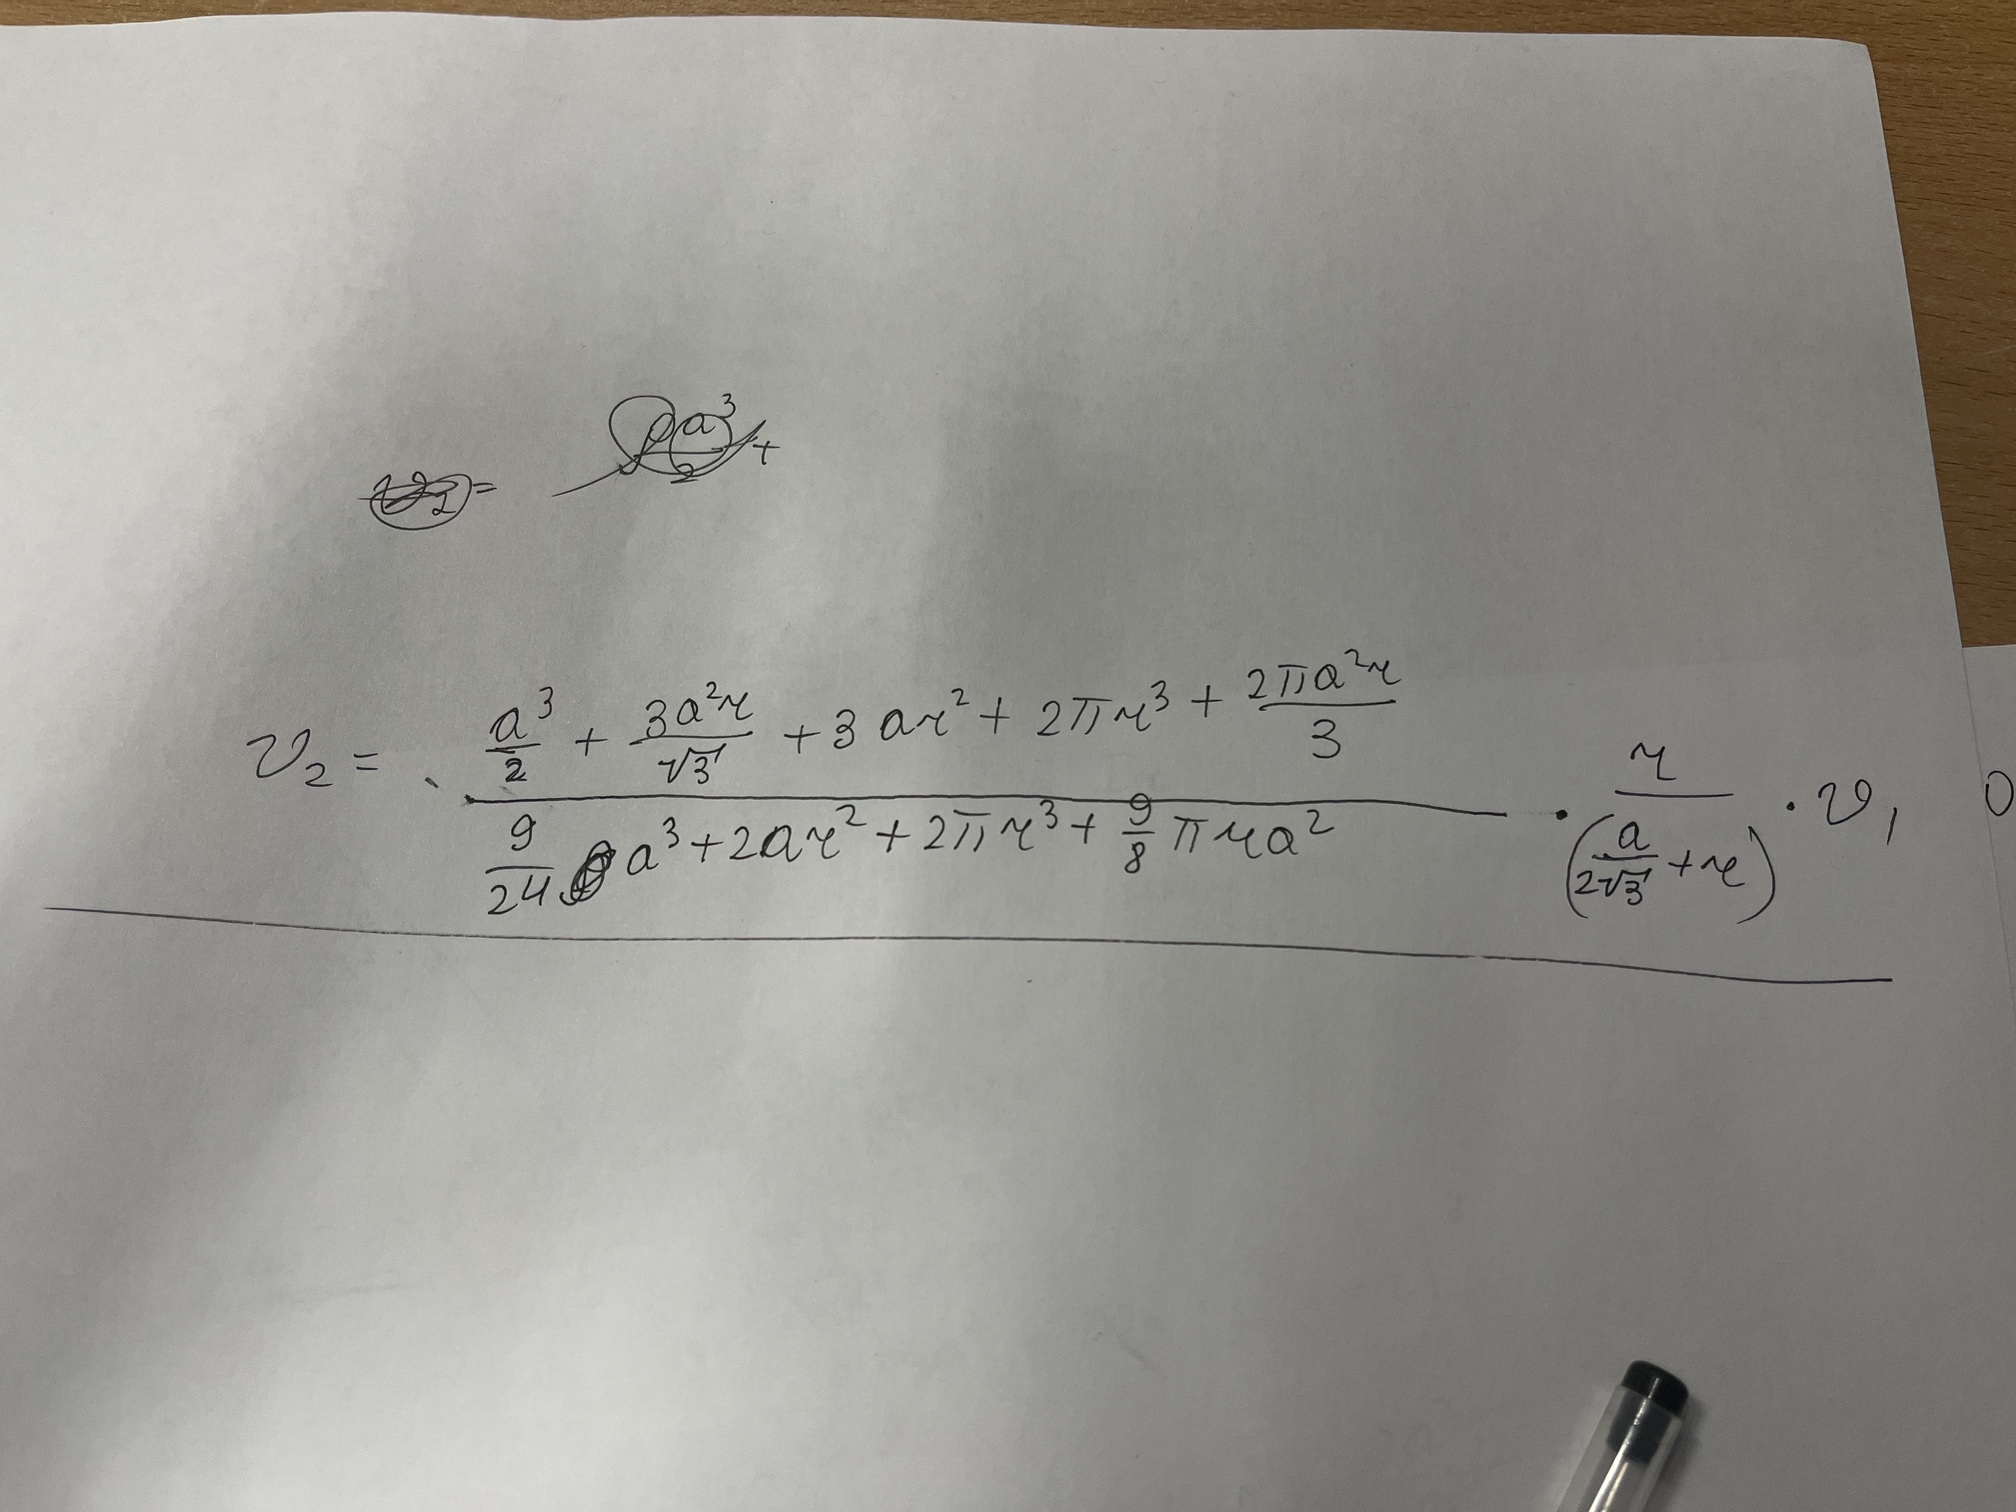 v₂ = a³/2 +
v₂ = (a³/2 + 3a²r/√3 + 3ar² + 2πr³ + 2πa²r/3) / (9/24 a³ + 2ar² + 2πr³ + 9/8 πra²) · r/(a/2√3 + r) · v₁